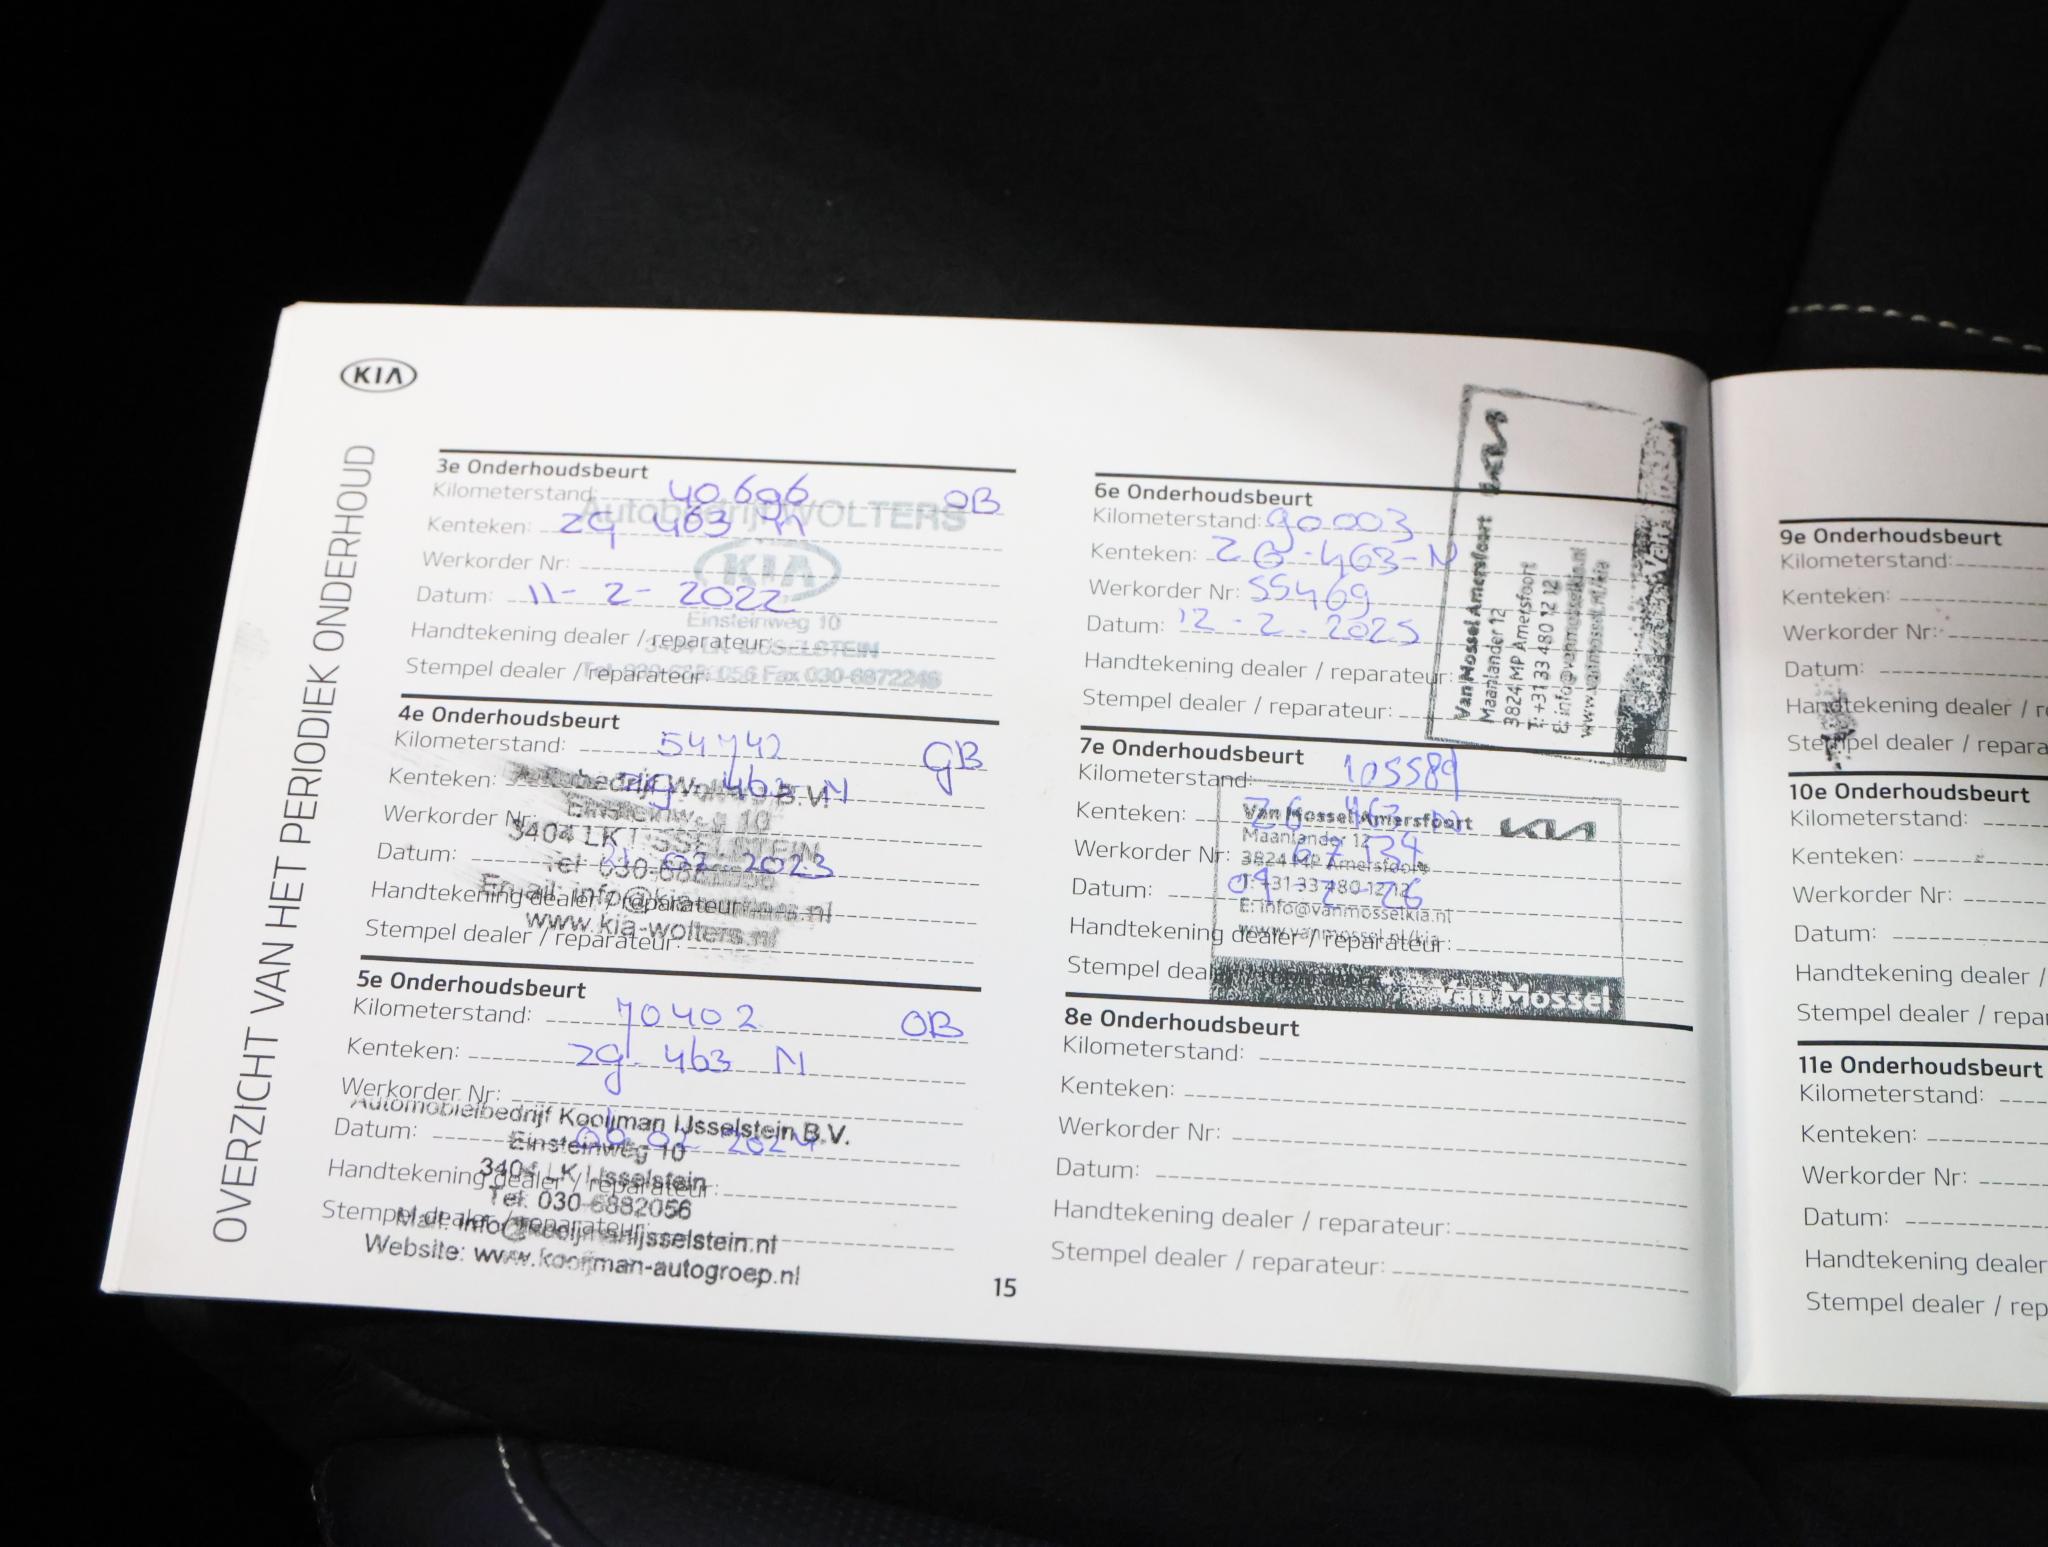 KIA
OVERZICHT VAN HET PERIODIEK ONDERHOUD
3e Onderhoudsbeurt
Kilometerstand: 40606 OB
Kenteken: zg 463 N
Werkorder Nr:
Datum: 11-2-2022
Handtekening dealer / reparateur:
Stempel dealer / reparateur:
Autobedrijf WOLTERS
KIA
Einsteinweg 10
3404 LK IJSSELSTEIN
Tel. 030-6882056 Fax 030-6872246
4e Onderhoudsbeurt
Kilometerstand: 54742 GB
Kenteken: zg 463 N
Werkorder Nr:
Datum: 2023
Handtekening dealer / reparateur:
Stempel dealer / reparateur:
Autobedrijf Wolters B.V.
Einsteinweg 10
3404 LK IJSSELSTEIN
Tel 030-6882056
Email: info@kia-wolters.nl
www.kia-wolters.nl
5e Onderhoudsbeurt
Kilometerstand: 70402 OB
Kenteken: zg-463 N
Werkorder Nr:
Datum: 2024
Handtekening dealer / reparateur:
Stempel dealer / reparateur:
Automobielbedrijf Kooijman IJsselstein B.V.
Einsteinweg 10
3404 LK IJsselstein
Tel: 030-6882056
Mail: info@kooijmanijsselstein.nl
Website: www.kooijman-autogroep.nl
15
6e Onderhoudsbeurt
Kilometerstand: 90003
Kenteken: ZG-463-N
Werkorder Nr: 55469
Datum: 12-2-2025
Handtekening dealer / reparateur:
Stempel dealer / reparateur:
Van Mossel Amersfoort KIA
Maanlander 12
3824 MP Amersfoort
T: +31 33 480 12 12
E: info@vanmosselkia.nl
www.vanmossel.nl/kia
Van Mossel
7e Onderhoudsbeurt
Kilometerstand: 105589
Kenteken: ZG 463 N
Werkorder Nr: 67134
Datum: 09-2-26
Handtekening dealer / reparateur:
Stempel dealer
Van Mossel Amersfoort KIA
Maanlander 12
3824 MP Amersfoort
T: +31 33 480 12 12
E: info@vanmosselkia.nl
www.vanmossel.nl/kia
Van Mossel
8e Onderhoudsbeurt
Kilometerstand:
Kenteken:
Werkorder Nr:
Datum:
Handtekening dealer / reparateur:
Stempel dealer / reparateur:
9e Onderhoudsbeurt
Kilometerstand:
Kenteken:
Werkorder Nr:
Datum:
Handtekening dealer / r
Stempel dealer / repara
10e Onderhoudsbeurt
Kilometerstand:
Kenteken:
Werkorder Nr:
Datum:
Handtekening dealer /
Stempel dealer / repar
11e Onderhoudsbeurt
Kilometerstand:
Kenteken:
Werkorder Nr:
Datum:
Handtekening dealer
Stempel dealer / rep